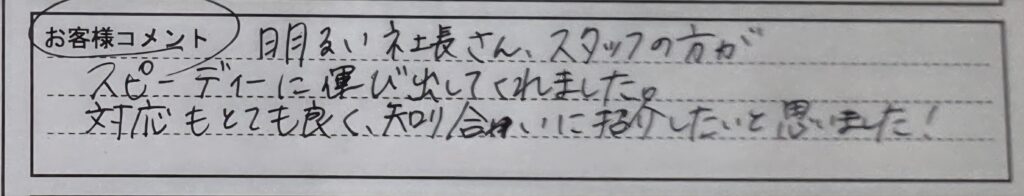 お客様コメント 明るい社長さん、スタッフの方が
スピーディーに運び出してくれました。
対応もとても良く、知り合いに紹介したいと思いました！